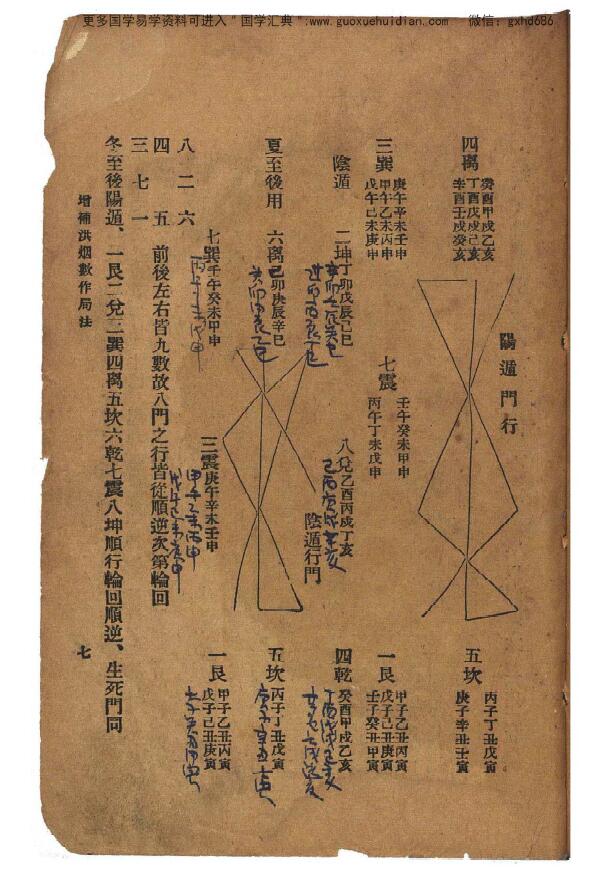 更多国学易学资料可进入＂国学汇典＂:www.guoxuehuidian.com 微信：gxhd686
陽遁門行
四离
癸酉甲戌乙亥
丁酉戊戌己亥
辛酉壬戌癸亥
五坎
丙子丁丑戊寅
庚子辛丑壬寅
三巽
庚午辛未壬申
甲午乙未丙申
戊午己未庚申
七震
壬午癸未甲申
丙午丁未戊申
一艮
甲子乙丑丙寅
戊子己丑庚寅
壬子癸丑甲寅
陰遁
二坤丁卯戊辰己巳
八兌乙酉丙戌丁亥
陰遁行門
四乾癸酉甲戌乙亥
夏至後用
六离己卯庚辰辛巳
五坎丙子丁丑戊寅
七巽壬午癸未甲申
三震庚午辛未壬申
一艮
甲子乙丑丙寅
戊子己丑庚寅
八二六
四 五 前後左右皆九數故八門之行皆從順逆次第輪回
三七一
冬至後陽遁、一艮二兌三巽四离五坎六乾七震八坤順行輪回順逆、生死門同
增補洪烟數作局法
七